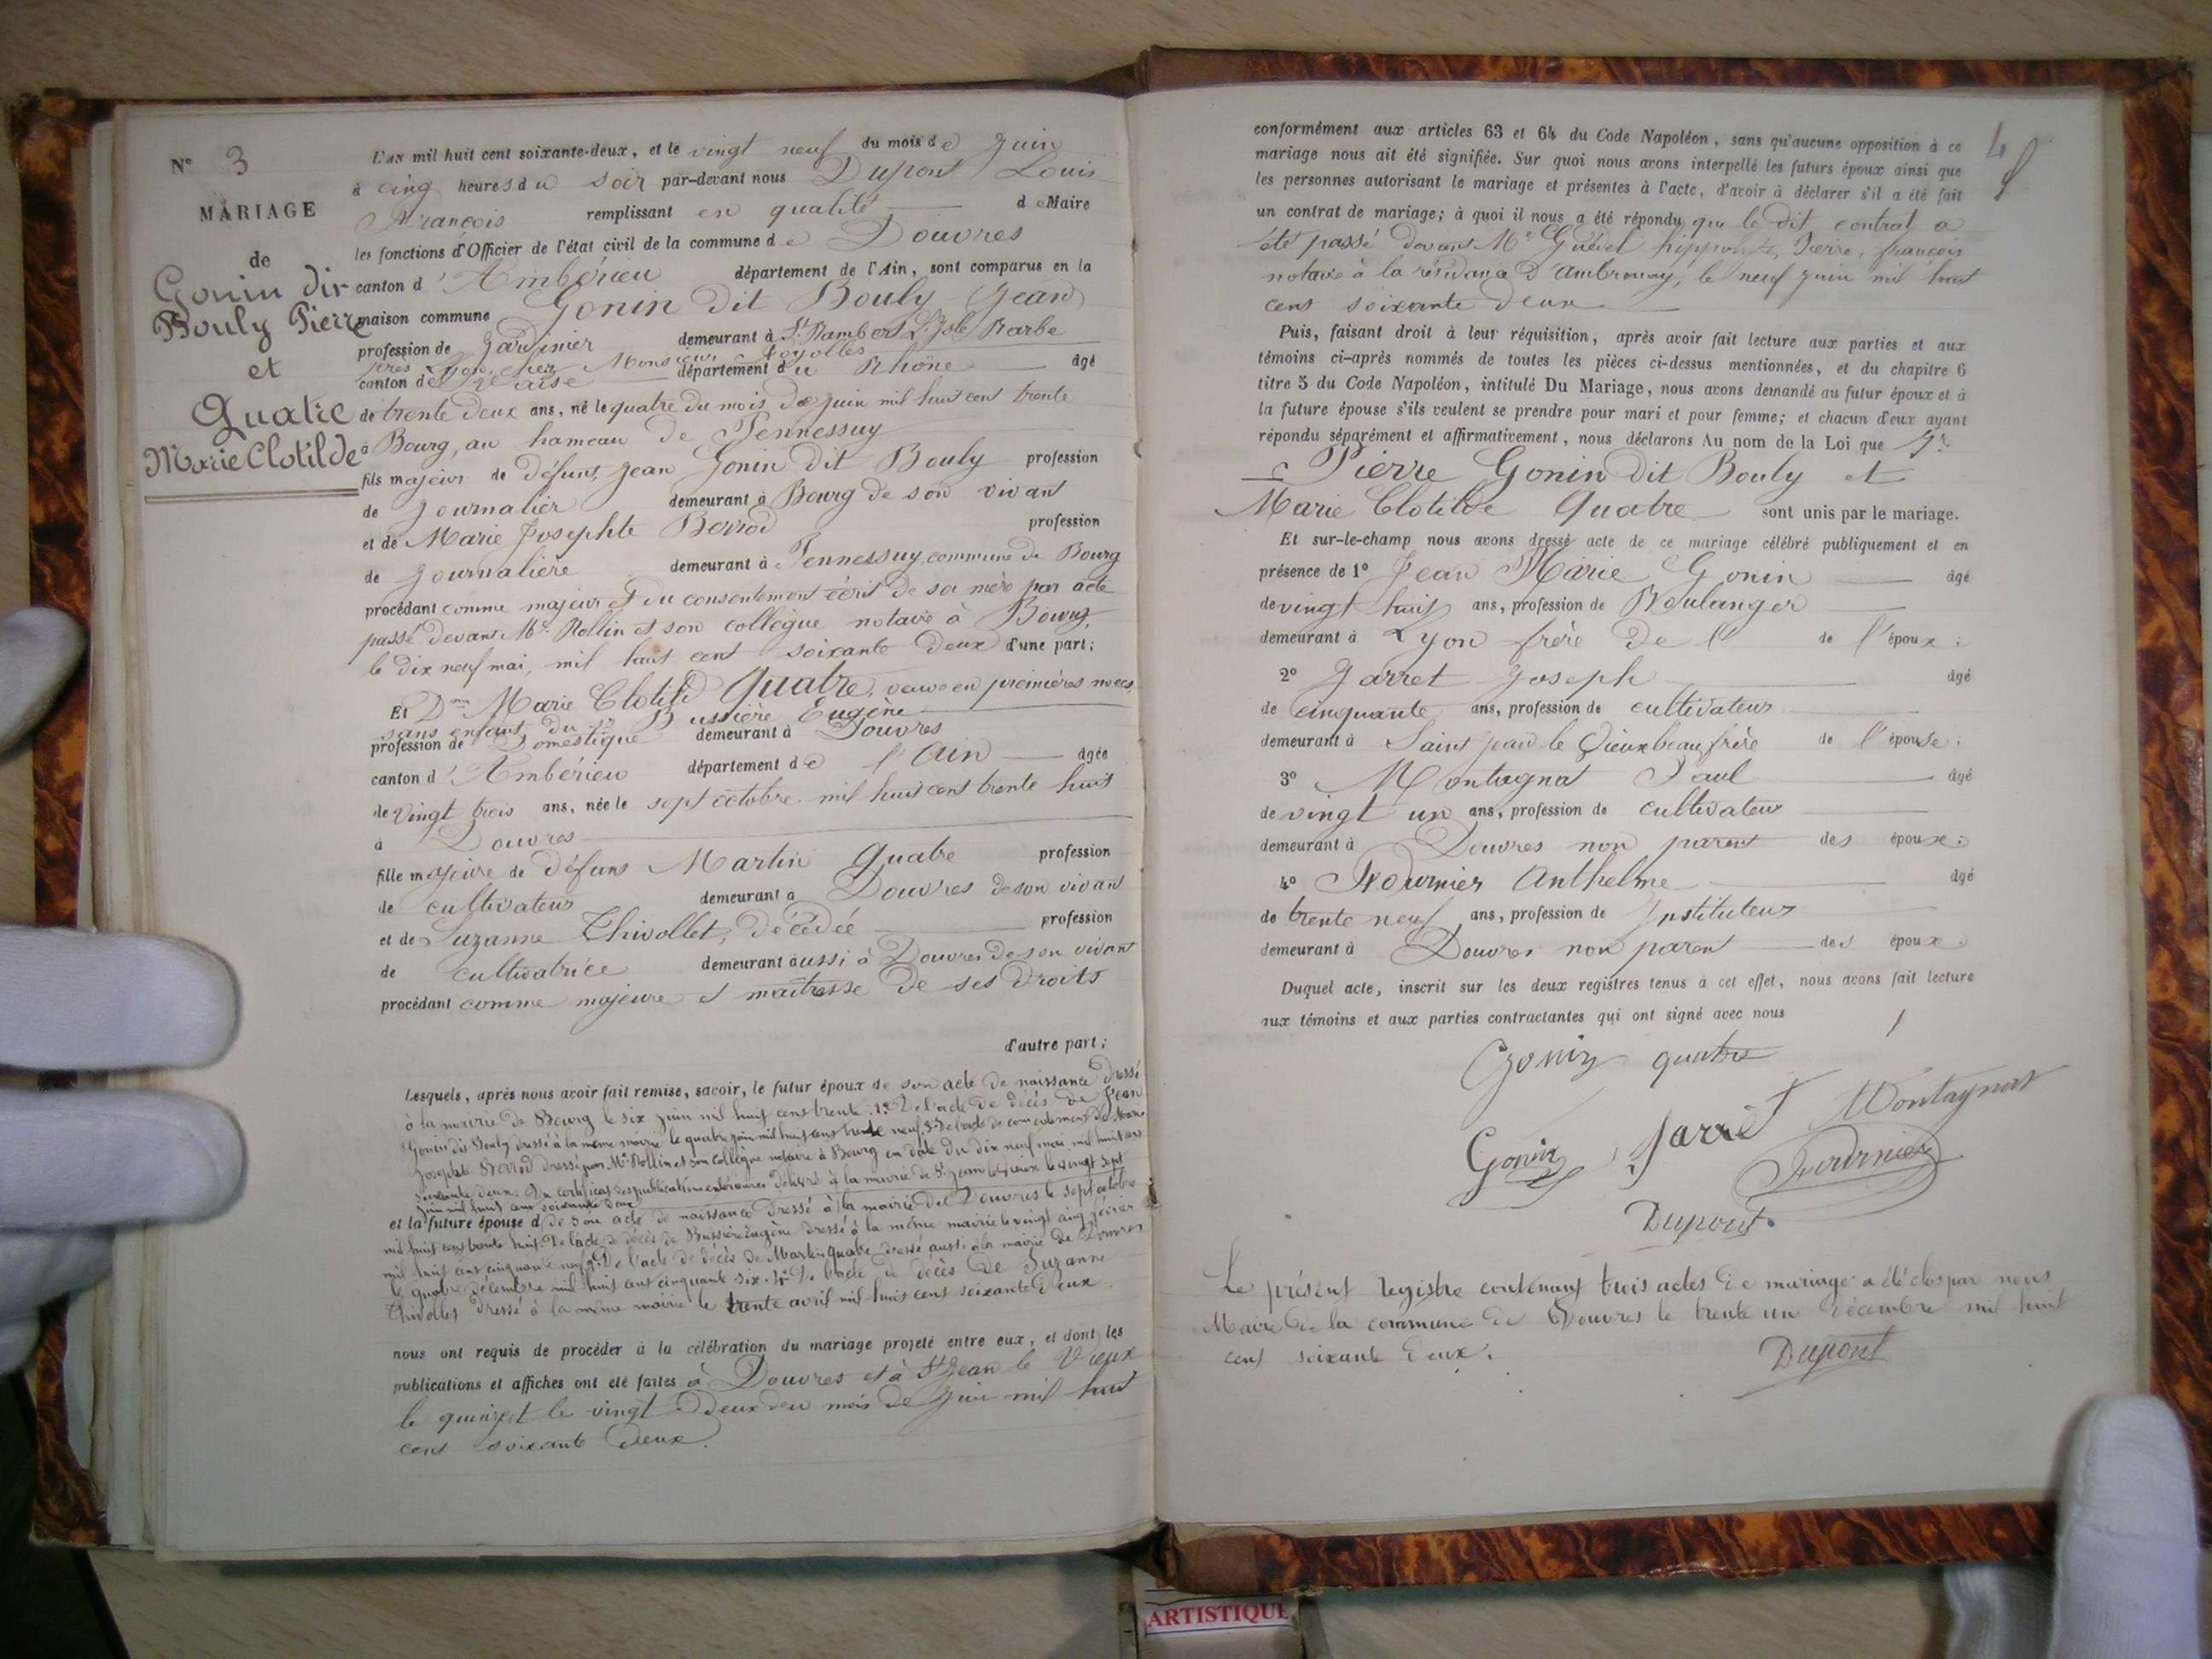 N° 3
MARIAGE
de
Gonin dit
Bouly Pierre
et
Quatre
Marie Clotilde
L'AN mil huit cent soixante-deux, et le vingt neuf du mois de Juin
à cinq heures du soir par-devant nous Dupont Louis
François remplissant en qualité de Maire
les fonctions d'Officier de l'état civil de la commune de Douvres
canton d'Ambérieu département de l'Ain, sont comparus en la
maison commune Gonin dit Bouly (Jean)
profession de Jardinier demeurant à St Rambert L'Isle Barbe
près Lyon, chez Monsieur
canton de Vaise département du Rhône âgé
de trente deux ans, né le quatre du mois de juin mil huit cent trente
à Bourg, au hameau de Pennessuy
fils majeur de défunt Jean Gonin dit Bouly profession
de Journalier demeurant à Bourg de son vivant
et de Marie Josephte Berrod profession
de Journalière demeurant à Pennessuy commune de Bourg
procédant comme majeur et du consentement écrit de sa mère par acte
passé devant Me Rollin et son collègue notaire à Bourg,
le dix neuf mai, mil huit cent soixante deux d'une part;
Et Dme Marie Clotild Quatre, veuve en premières noces,
sans enfant, du sr Bussière Eugène
profession de Domestique demeurant à Douvres
canton d'Ambérieu département de l'Ain âgée
de vingt trois ans, née le sept octobre mil huit cent trente huit
à Douvres
fille majeure de défunt Martin Quatre profession
de cultivateur demeurant à Douvres de son vivant
et de Suzanne Thivollet, décédée profession
de cultivatrice demeurant aussi à Douvres de son vivant
procédant comme majeure et maîtresse de ses droits
d'autre part;
Lesquels, après nous avoir fait remise, savoir, le futur époux de son acte de naissance dressé
à la mairie de Bourg le six juin mil huit cent trente. 2° De l'acte de décès de Jean
Gonin dit Bouly dressé à la même mairie le quatre juin mil huit cent trente neuf. 3° De l'acte de consentement de Marie
Josephte Berrod dressé par Me Rollin et son collègue notaire à Bourg en date du dix neuf mai mil huit cent
soixante deux. Du certificat des publications délivré à la mairie de St Jean le Vieux le vingt sept
juin mil huit cent soixante deux
et la future épouse de son acte de naissance dressé à la mairie de Douvres le sept octobre
mil huit cent trente huit. De l'acte de décès de Bussière Eugène dressé à la même mairie le vingt cinq février
mil huit cent cinquante neuf. De l'acte de décès de Martin Quatre dressé aussi à la mairie de Douvres
le quatre décembre mil huit cent cinquante six. 4° De l'acte de décès de Suzanne
Thivollet dressé à la même mairie le trente avril mil huit cent soixante deux
nous ont requis de procéder à la célébration du mariage projeté entre eux, et dont les
publications et affiches ont été faites à Douvres et à St Jean le Vieux
le quinze et le vingt deux du mois de Juin mil huit
cent soixante deux.
4
conformément aux articles 63 et 64 du Code Napoléon, sans qu'aucune opposition à ce
mariage nous ait été signifiée. Sur quoi nous avons interpellé les futurs époux ainsi que
les personnes autorisant le mariage et présentes à l'acte, d'avoir à déclarer s'il a été fait
un contrat de mariage; à quoi il nous a été répondu que le dit contrat a
été passé devant Me hippolyte, Pierre, françois
notaire à la résidance d'Ambronay, le neuf juin mil huit
cent soixante deux
Puis, faisant droit à leur réquisition, après avoir fait lecture aux parties et aux
témoins ci-après nommés de toutes les pièces ci-dessus mentionnées, et du chapitre 6
titre 5 du Code Napoléon, intitulé Du Mariage, nous avons demandé au futur époux et à
la future épouse s'ils veulent se prendre pour mari et pour femme; et chacun d'eux ayant
répondu séparément et affirmativement, nous déclarons Au nom de la Loi que Sr
Pierre Gonin dit Bouly et
Marie Clotilde Quatre sont unis par le mariage.
Et sur-le-champ nous avons dressé acte de ce mariage célébré publiquement et en
présence de 1° Jean Marie Gonin âgé
de vingt huit ans, profession de Boulanger
demeurant à Lyon frère de l' de l'époux;
2° Jarret Joseph âgé
de cinquante ans, profession de cultivateur
demeurant à Saint jean le Vieux beau frère de l'épouse;
3° Montagnat Paul âgé
de vingt un ans, profession de cultivateur
demeurant à Douvres non parent des époux;
4° Fournier Anthelme âgé
de trente neuf ans, profession de Instituteur
demeurant à Douvres non parent des époux
Duquel acte, inscrit sur les deux registres tenus à cet effet, nous avons fait lecture
aux témoins et aux parties contractantes qui ont signé avec nous
Gonin quatre
Gonin Jarret Montagnat
Fournier
Dupont
Le présent registre contenant trois actes de mariage a été clos par nous
Maire de la commune de Douvres le trente un décembre mil huit
cent soixante deux.
Dupont
ARTISTIQUE